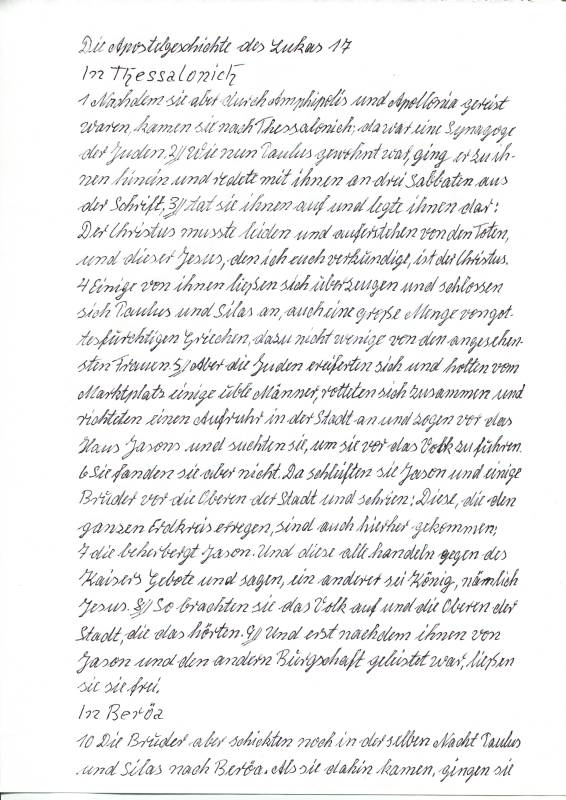 Die Apostelgeschichte des Lukas 17
In Thessalonich
1 Nachdem sie aber durch Amphipolis und Apollonia gereist
waren, kamen sie nach Thessalonich; da war eine Synagoge
der Juden. 2// Wie nun Paulus gewohnt war, ging er zu ih-
nen hinein und redete mit ihnen an drei Sabbaten aus
der Schrift, 3// tat sie ihnen auf und legte ihnen dar:
Der Christus musste leiden und auferstehen von den Toten,
und dieser Jesus, den ich euch verkündige, ist der Christus.
4 Einige von ihnen ließen sich überzeugen und schlossen
sich Paulus und Silas an, auch eine große Menge von got-
tesfürchtigen Griechen, dazu nicht wenige von den angesehen-
sten Frauen. 5// Aber die Juden ereiferten sich und holten vom
Marktplatz einige üble Männer, rotteten sich zusammen und
richteten einen Aufruhr in der Stadt an und zogen vor das
Haus Jasons und suchten sie, um sie vor das Volk zu führen.
6 Sie fanden sie aber nicht. Da schleiften sie Jason und einige
Brüder vor die Oberen der Stadt und schrien: Diese, die den
ganzen Erdkreis erregen, sind auch hierher gekommen;
7 die beherbergt Jason. Und diese alle handeln gegen des
Kaisers Gebote und sagen, ein anderer sei König, nämlich
Jesus. 8// So brachten sie das Volk auf und die Oberen der
Stadt, die das hörten. 9// Und erst nachdem ihnen von
Jason und den andern Bürgschaft geleistet war, ließen
sie sie frei.
In Beröa
10 Die Brüder aber schickten noch in derselben Nacht Paulus
und Silas nach Beröa. Als sie dahin kamen, gingen sie